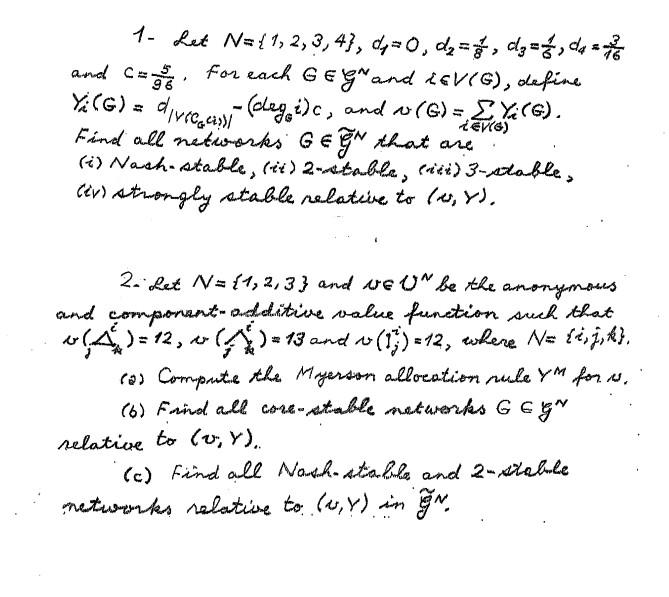 1- Let N={1, 2, 3, 4}, d₁=0, d₂=1/8, d₃=1/6, d₄=3/16
and c=5/96. For each G∈𝒢ᴺ and i∈V(G), define
Yᵢ(G) = d_|V(C_G(i))| - (deg_G i)c, and v(G) = Σ_{i∈V(G)} Yᵢ(G).
Find all networks G∈𝒢̃ᴺ that are
(i) Nash-stable, (ii) 2-stable, (iii) 3-stable,
(iv) strongly stable relative to (v, Y).
2- Let N={1, 2, 3} and v∈Uᴺ be the anonymous
and component-additive value function such that
v(△ i j k)=12, v(∧ i j k)=13 and v(| i j)=12, where N={i,j,k}.
(a) Compute the Myerson allocation rule Yᴹ for v.
(b) Find all core-stable networks G∈𝒢ᴺ
relative to (v, Y).
(c) Find all Nash-stable and 2-stable
networks relative to (v, Y) in 𝒢̃ᴺ.